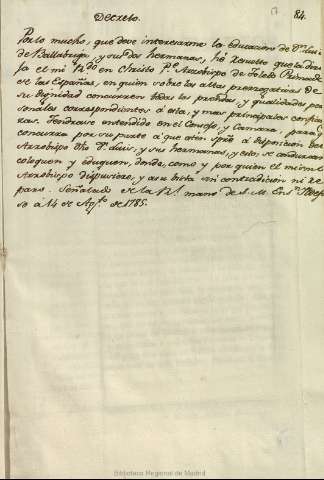 84.
Decreto.
Por lo mucho, que deve interesarme la educacion de Dn. Luis
de Ballabriga y sus dos hermanas, hé resuelto que la dirija
el mi Rdo en Christo Pe. Arzobispo de Toledo Primado
de las Españas, en quien sobre las altas prerrogativas de
su dignidad concurren todas las prendas, y qualidades per
sonales correspondientes á esta, y mas principales confian
zas. Tendrase entendido en el Consejo, y Camara, para que
concurra por su parte á que esten á disposicion del
Arzobispo dho Dn. Luis, y sus hermanas, y estos se conduzcan
coloquen y eduquen, donde, como y por quien el mismo
Arzobispo dispusiere, y a su vista sin contradicion ni re
paro. Señalado de la Rl. mano de S. M. En Sn. Ildefon
so á 14 de Agto. de 1785.
Biblioteca Regional de Madrid